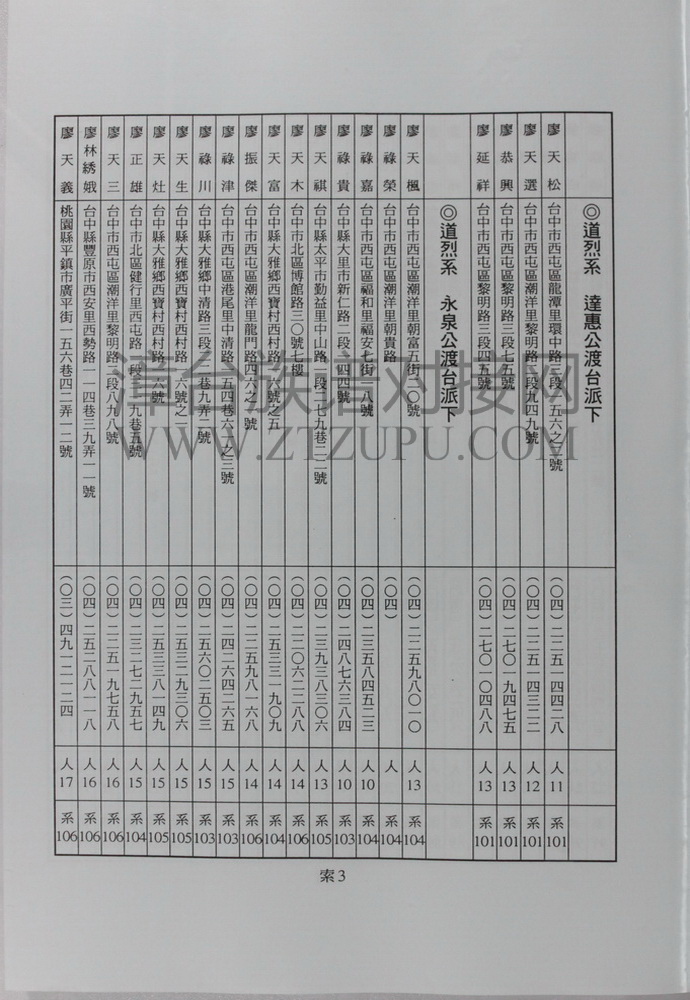 ◎道烈系　達惠公渡台派下
廖天松　台中市西屯區龍潭里環中路　段　五六之　號　（〇四）二二五一四四二八　人11　系101
廖天選　台中市西屯區潮洋里黎明路　段九四九號　（〇四）二二五一四三二二　人12　系101
廖恭興　台中市西屯區黎明路三段七五號　（〇四）二七〇一九四七五　人13　系101
廖延祥　台中市西屯區黎明路三段四五號　（〇四）二七〇一〇四八八　人13　系101
◎道烈系　永泉公渡台派下
廖天楓　台中市西屯區潮洋里朝富五街二〇號　（〇四）二二五九八〇一〇　人13　系104
廖祿榮　台中市西屯區潮洋里朝貴路　（〇四）　人　系104
廖祿嘉　台中市西屯區福和里福安七街一八號　（〇四）二三五八四五二三　人10　系104
廖祿貴　台中縣大里市新仁路二段　四四號　（〇四）二四八七六三八四　人10　系103
廖天祺　台中縣太平市勤益里中山路　段二七九巷二二號　（〇四）二三九三八三〇六　人13　系105
廖天木　台中市北區博館路三〇號七樓　（〇四）二二〇六二二八六　人14　系106
廖天富　台中縣大雅鄉西寶村西村路　六號之五　（〇四）二五三三一九〇九　人14　系104
廖振傑　台中市西屯區潮洋里龍門路四六之　號　（〇四）二二五九八一六八　人14　系106
廖祿津　台中市西屯區港尾里中清路　五四巷六　之三號　（〇四）二四二六四二六五　人15　系103
廖祿川　台中縣大雅鄉中清路三段　二巷九弄　號　（〇四）二五六〇二五〇三　人15　系103
廖天生　台中縣大雅鄉西寶村西村路　六號之二　（〇四）二五三二九三〇六　人15　系105
廖天灶　台中縣大雅鄉西寶村西村路　六號　（〇四）二五三三八一四九　人15　系105
廖正雄　台中市北區健行里西屯路　段　九巷五號　（〇四）二三二七二九五七　人15　系104
廖天三　台中市西屯區潮洋里黎明路二段八九八號　（〇四）二二五一九七五八　人16　系106
廖林綉娥　台中縣豐原市西安里西勢路一一四巷三九弄一一號　（〇四）二五二八八一一八　人16　系106
廖天義　桃園縣平鎮市廣平街一五六巷四二弄一二號　（〇三）四九一二一二四　人17　系106
索3
漳台族谱对接网
WWW.ZTZUPU.COM